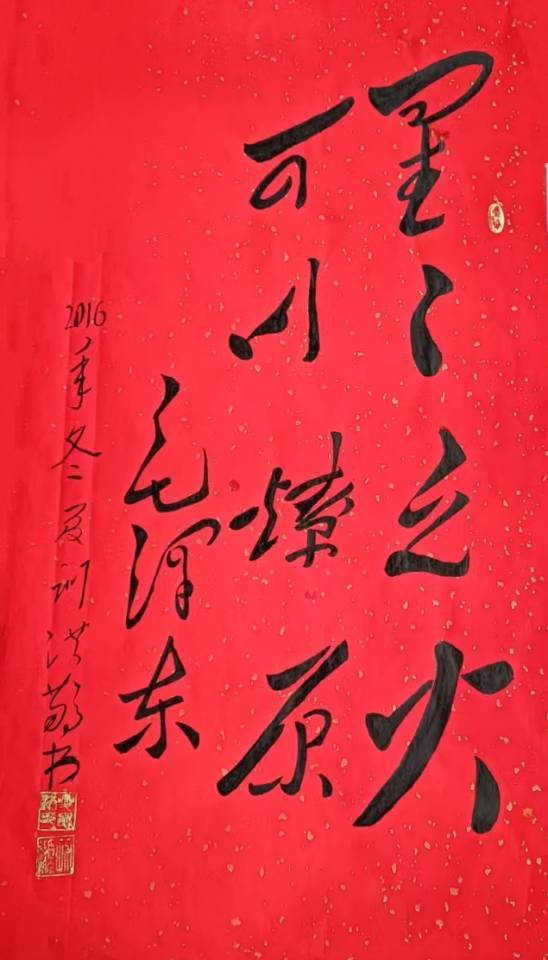 星星之火
可以燎原
毛泽东
2016年冬洪书